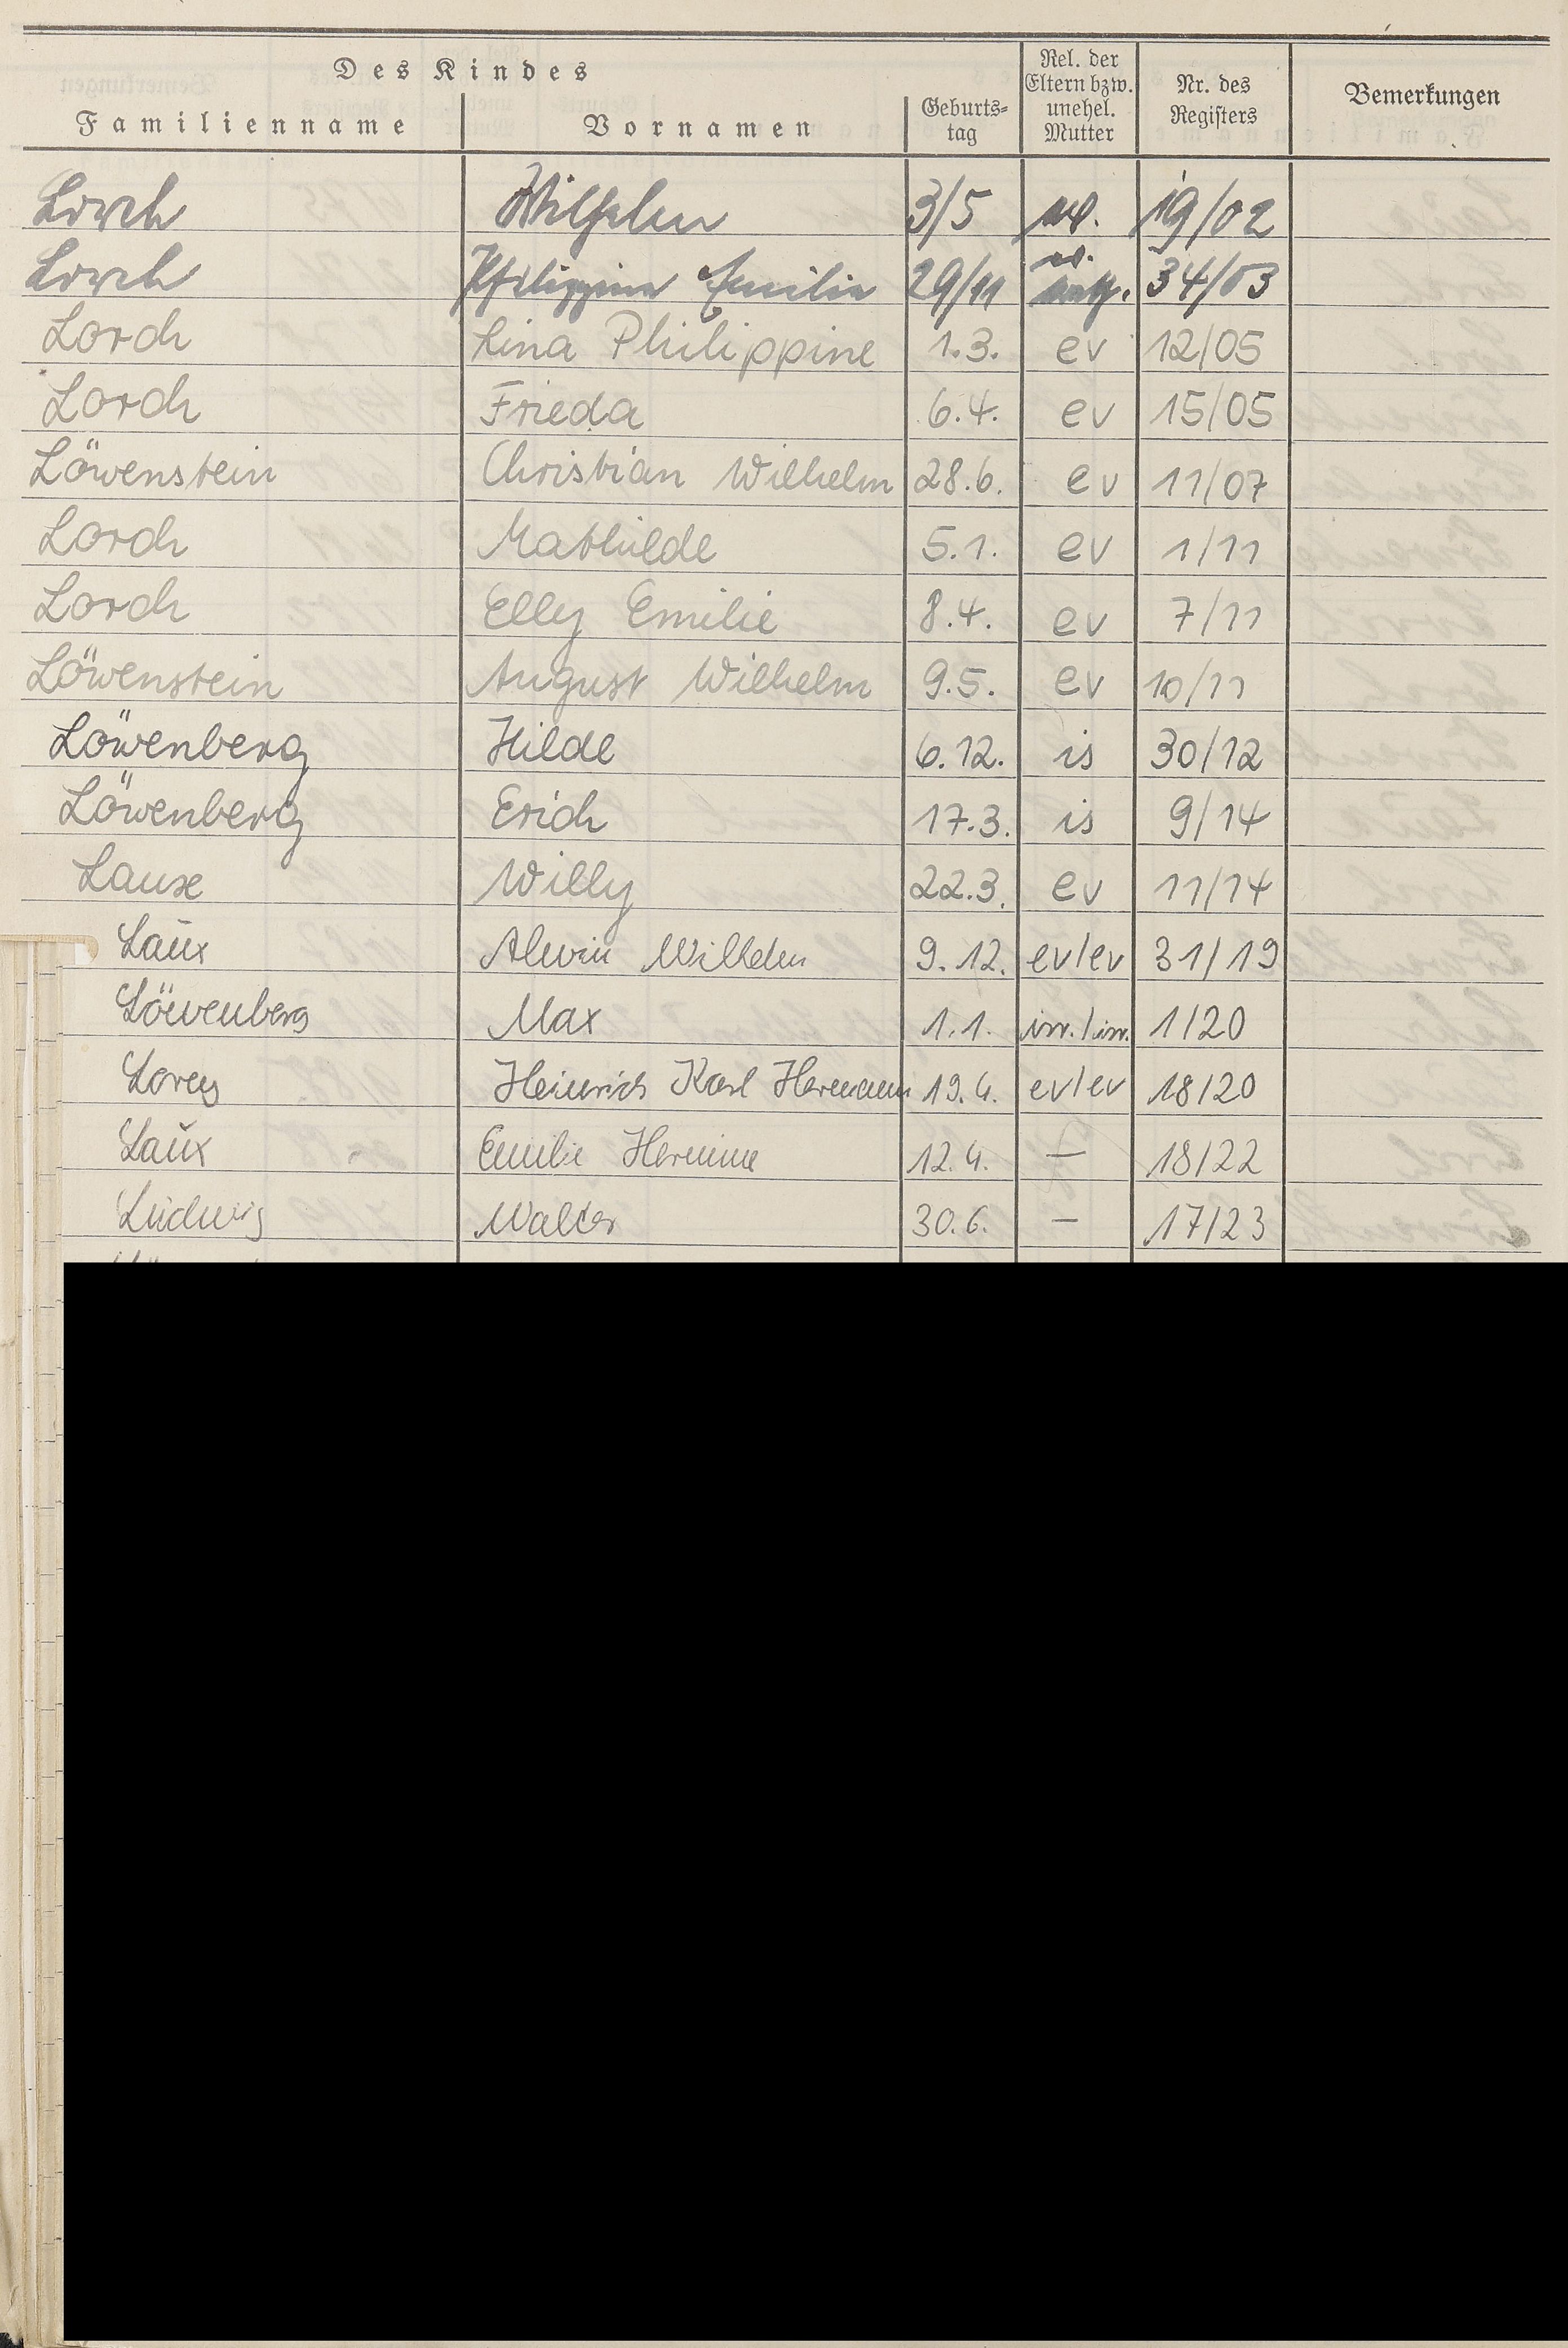 Des Kindes
Familienname Vornamen Geburts=tag Rel. der Eltern bzw. unehel. Mutter Nr. des Registers Bemerkungen
Lorch Wilhelm 3/5 ev. 19/02
Lorch Philippine Emilie 29/11 ev. 34/03
Lorch Lina Philippine 1.3. ev 12/05
Lorch Frieda 6.4. ev 15/05
Löwenstein Christian Wilhelm 28.6. ev 11/07
Lorch Mathilde 5.1. ev 1/11
Lorch Elly Emilie 8.4. ev 7/11
Löwenstein August Wilhelm 9.5. ev 10/11
Löwenberg Hilde 6.12. is 30/12
Löwenberg Erich 17.3. is 9/14
Laux Willy 22.3. ev 11/14
Laux Alwin Wilhelm 9.12. ev/ev 31/19
Löwenberg Max 1.1. isr./isr. 1/20
Lorey Heinrich Karl Hermann 19.4. ev/ev 18/20
Laux Emilie Hermine 12.4. — 18/22
Ludwig Walter 30.6. — 17/23